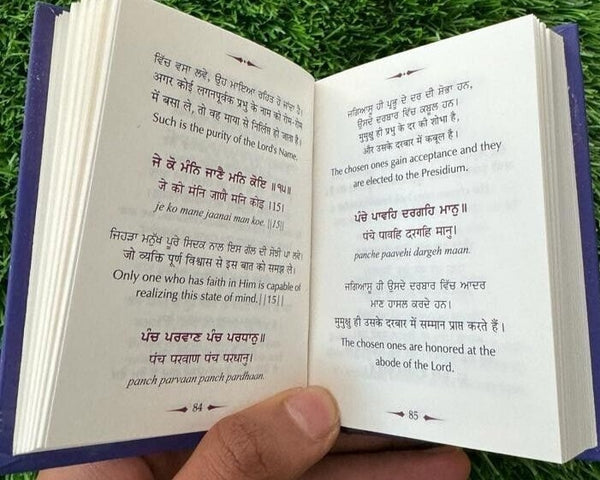 ਵਿੱਚ ਵਸਾ ਲਵੇ, ਉਹ ਮਾਇਆ ਰਹਿਤ ਹੋ ਜਾਂਦਾ ਹੈ।
अगर कोई लगनपूर्वक प्रभु के नाम को रोम-रोम
में बसा ले, तो वह माया से निर्लिप्त हो जाता है।
Such is the purity of the Lord's Name.
ਜੇ ਕੋ ਮੰਨਿ ਜਾਣੈ ਮਨਿ ਕੋਇ ॥੧੫॥
जे को मंनि जाणै मनि कोइ ।15।
je ko mane jaanai man koe. ||15||
ਜਿਹੜਾ ਮਨੁੱਖ ਪੂਰੇ ਸਿਦਕ ਨਾਲ ਇਸ ਗੱਲ ਦੀ ਸੋਝੀ ਪਾ ਲਵੇ।
जो व्यक्ति पूर्ण विश्वास से इस बात को समझ ले।
Only one who has faith in Him is capable of
realizing this state of mind.||15||
ਪੰਚ ਪਰਵਾਣ ਪੰਚ ਪਰਧਾਨੁ॥
पंच परवाण पंच परधानु।
panch parvaan panch pardhaan.
84
ਜਗਿਆਸੂ ਹੀ ਪ੍ਰਭੂ ਦੇ ਦਰ ਦੀ ਸ਼ੋਭਾ ਹਨ,
ਉਸਦੇ ਦਰਬਾਰ ਵਿੱਚ ਕਬੂਲ ਹਨ।
मुमुक्षु ही प्रभु के दर की शोभा है,
और उसके दरबार में कबूल है।
The chosen ones gain acceptance and they
are elected to the Presidium.
ਪੰਚੇ ਪਾਵਹਿ ਦਰਗਹਿ ਮਾਨੁ॥
पंचे पावहि दरगहि मानु।
panche paavehi dargeh maan.
ਜਗਿਆਸੂ ਹੀ ਉਸਦੇ ਦਰਬਾਰ ਵਿੱਚ ਆਦਰ
ਮਾਣ ਹਾਸਲ ਕਰਦੇ ਹਨ।
मुमुक्षु ही उसके दरबार में सम्मान प्राप्त करते हैं।
The chosen ones are honored at the
abode of the Lord.
85